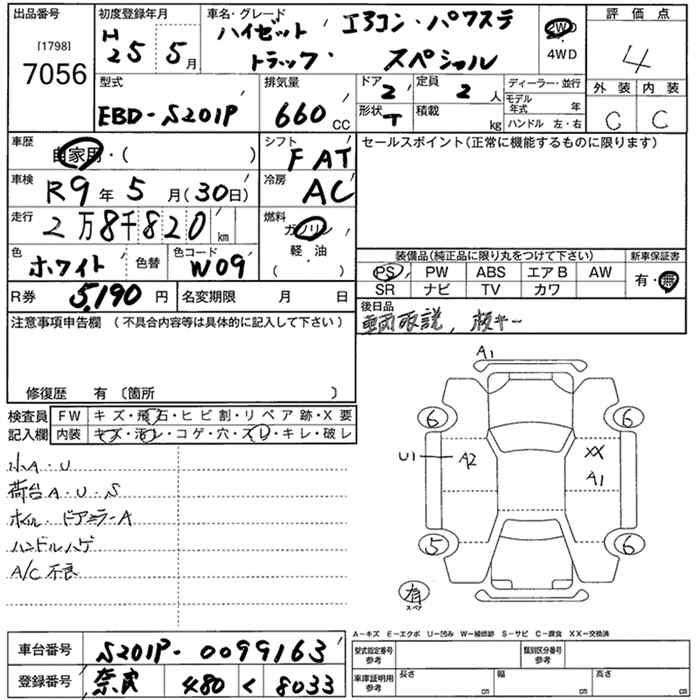 出品番号 初度登録年月 車名・グレード 評価点
[1798] 7056
H 25 5月
ハイゼット エアコン・パワステ
トラック スペシャル
2WD・4WD
4
型式 排気量 ドア 定員 ディーラー・並行 外装 内装
EBD-S201P 660CC 2 2人 モデル年式 年 C C
形状 T 積載 kg ハンドル 左・右
車歴 シフト セールスポイント(正常に機能するものに限ります)
自家用・( ) FAT
車検 R9年5月(30日) 冷房 AC
走行 2万8千820km 燃料 ガソリン
軽・油
( )
色 ホワイト 色替 色コード W09
装備品(純正品に限り丸をつけて下さい) 新車保証書
PS PW ABS エアB AW 有・無
SR ナビ TV カワ
R券 5,190円 名変期限 月 日
後日品
車両取説,
注意事項申告欄 (不具合内容等は具体的に記入して下さい)
修復歴 有 〔箇所 〕
検査員 FW キズ・飛石・ヒビ割・リペア跡・X要
記入欄 内装 キズ・汚レ・コゲ・穴・スレ・キレ・破レ
小A・U
荷台A・U・S
ホイル・ドアミラーA
ハンドルハゲ
A/C不良
A1
6 6
U1 A2 XX
A1
5 6
有
スペア
A-キズ E-エクボ U-凹み W-補修跡 S-サビ C-腐食 XX-交換済
車台番号 S201P-0099163
型式指定番号 参考 類別区分番号 参考
登録番号 奈良 480 く 8033
車庫証明用 参考 長さ cm 幅 cm 高さ cm